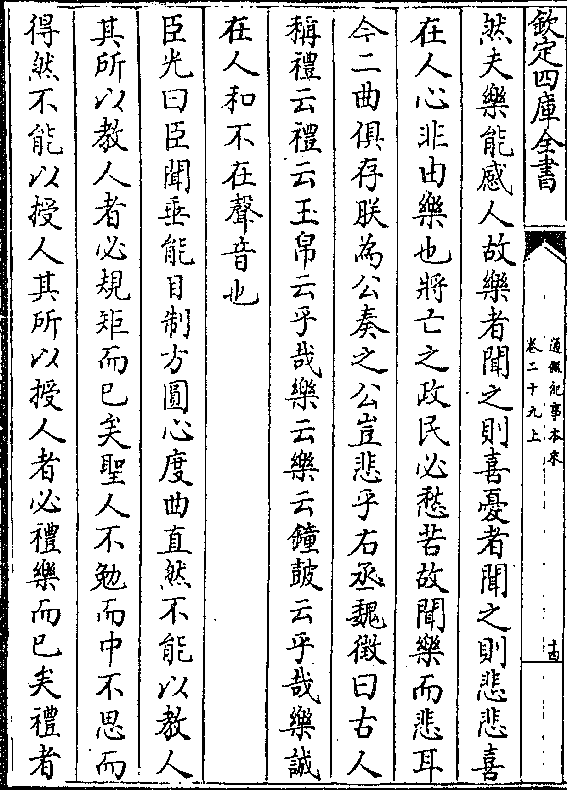 欽定四庫全書
通鑑紀事本末
卷二十九上
然夫樂能感人故樂者聞之則喜憂者聞之則悲悲喜
在人心非由樂也將亡之政民必愁苦故聞樂而悲耳
今二曲俱存朕為公奏之公豈悲乎右丞魏徵曰古人
稱禮云禮云玉帛云乎哉樂云樂云鐘鼓云乎哉樂誠
在人和不在聲音也
臣光曰臣聞垂能目制方圓心度曲直然不能以教人
其所以教人者必規矩而已矣聖人不勉而中不思而
得然不能以授人其所以授人者必禮樂而已矣禮者